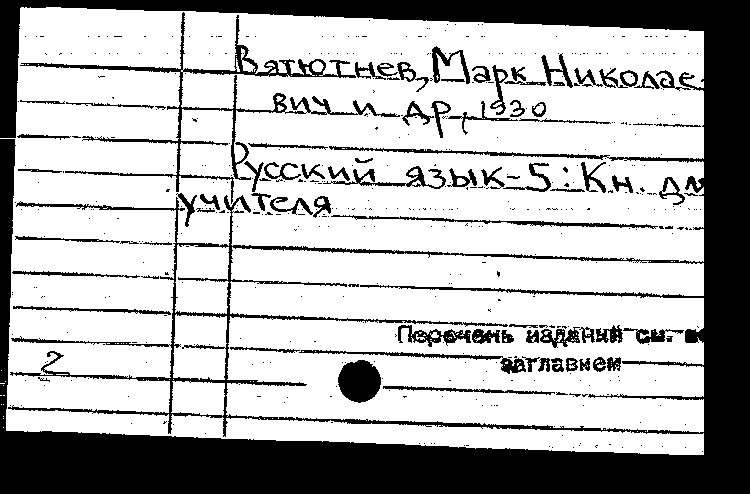 Вятютнев, Марк Николае-
вич и др, 1930
Русский язык-5: Кн. для
учителя
Перечень изданий см.
заглавием
2